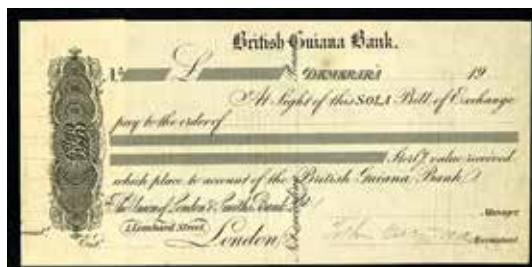 British Guiana Bank.
£ DEMERARA 19
At Sight of this SOLA Bill of Exchange
pay to the order of
Sterlg value received
which place to account of the British Guiana Bank
The Union of London & Smiths Bank Ltd
2 Lombard Street,
London
Manager
Accountant